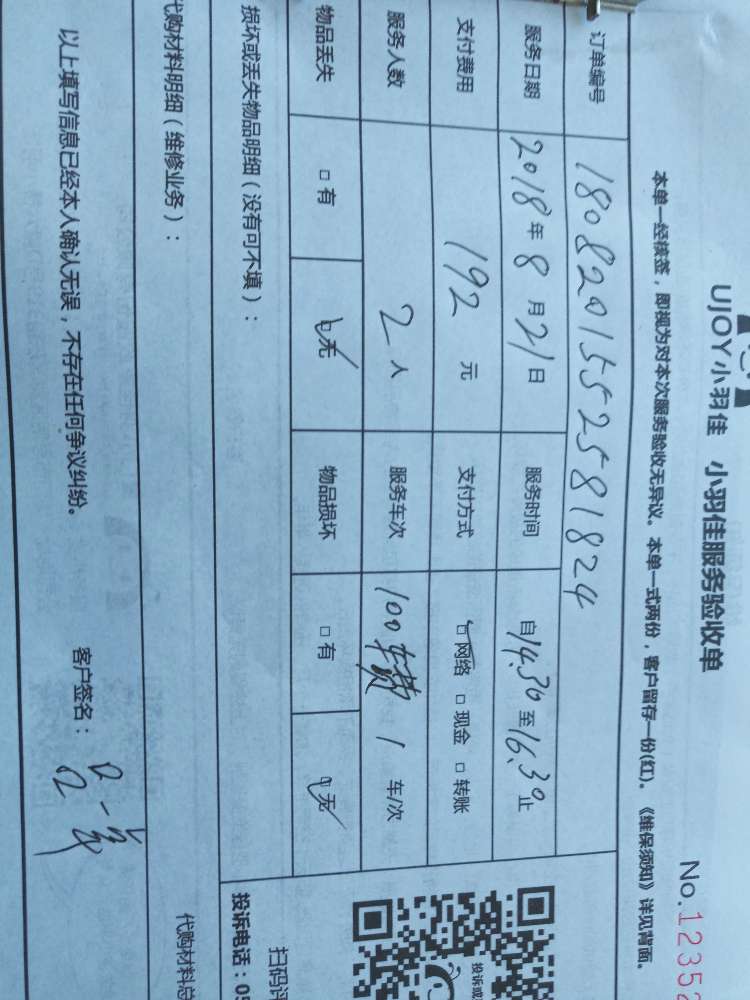 UJOY小羽佳 小羽佳服务验收单
No.1235
本单一经核签，即视为对本次服务验收无异议。本单一式两份，客户留存一份(红)。《维保须知》详见背面。
订单编号 180820155258 1824
服务日期 2018年8月21日 服务时间 自14.30至16.30止
支付费用 192元 支付方式 □网络 □现金 □转账
服务人数 2人 服务车次 100车费 1 车/次
物品丢失 □有 □无 物品损坏 □有 □无
损坏或丢失物品明细（没有可不填）：
代购材料明细（维修业务）：
代购材料总
以上填写信息已经本人确认无误，不存在任何争议纠纷。 客户签名：
投诉或
扫码评
投诉电话：05